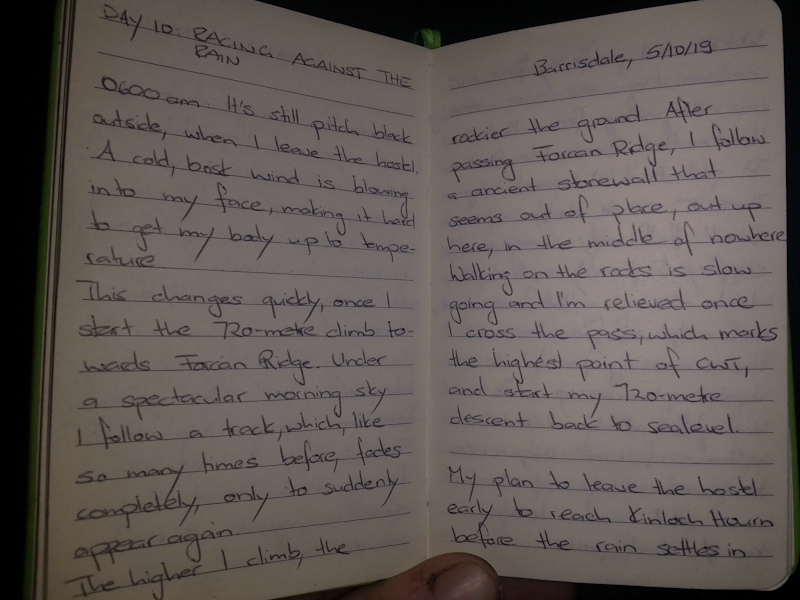 DAY 10: RACING AGAINST THE
RAIN
0600 am. It's still pitch black
outside, when I leave the hostel.
A cold, brisk wind is blowing
into my face, making it hard
to get my body up to tempe-
rature
This changes quickly, once I
start the 720-metre climb to-
wards Forcan Ridge. Under
a spectacular morning sky
I follow a track, which, like
so many times before, fades
completely, only to suddenly
appear again.
The higher I climb, the
Barrisdale, 5/10/19
rockier the ground. After
passing Forcan Ridge, I follow
a ancient stonewall that
seems out of place, out up
here, in the middle of nowhere
Walking on the rocks is slow
going and I'm relieved once
I cross the pass, which marks
the highest point of CWT,
and start my 720-metre
descent back to sealevel.
My plan to leave the hostel
early to reach Kinloch Hourn
before the rain settles in